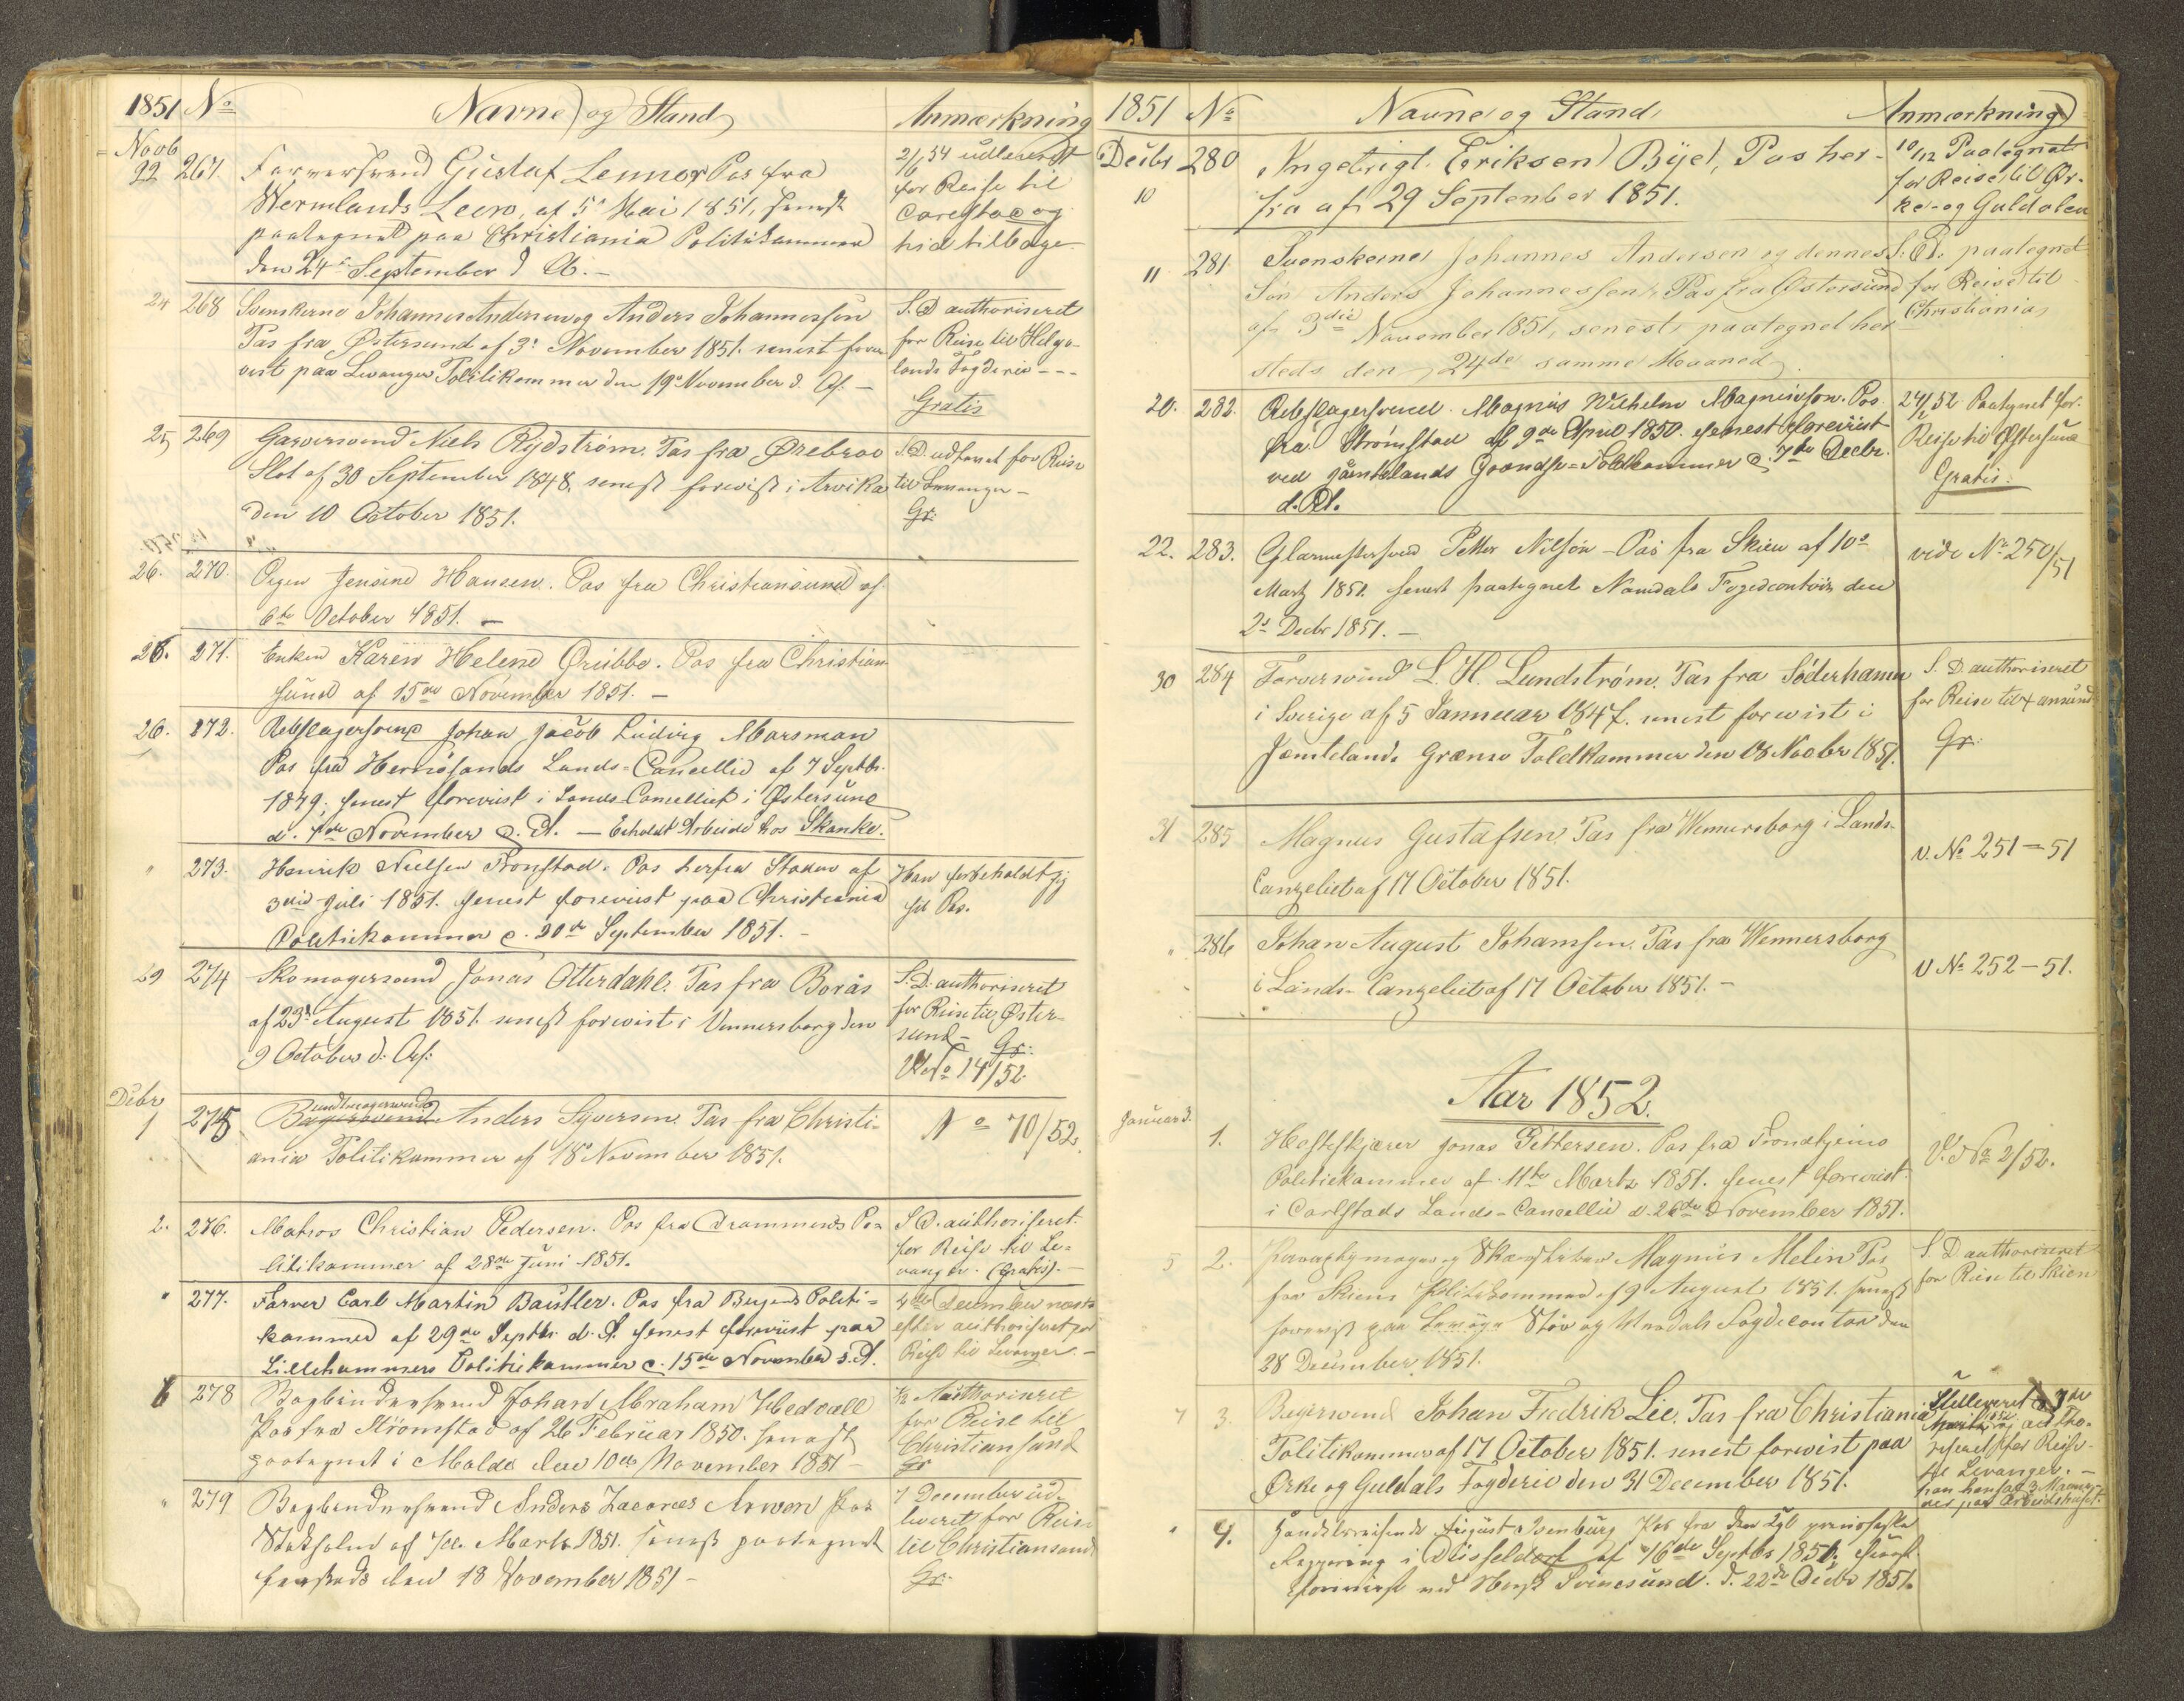 1851 No Navne og Stand Anmærkning
Novb
22 267. Farversvend Gustaf Lennor Pas fra
Wermlands Leen, af 5te Mai 1851, senest
paategnet paa Christiania Politikammer
den 24de September d. A. —
2/6 54 udleveret
for Reise til
og
hid tilbage
24 268 Svenskerne Johannes Andersen og Anders Johannessen
Pas fra Østersund af 3die November 1851. senest forevi-
vist paa Levanger Politikammer den 19de November d. A. —
S. D authoriseret
for Reise til Helge-
lands Fogderie - - -
Gratis
25 269 Garversvend Niels Rydstrøm. Pas fra Ørebroe
Slot af 30 September 1848, senest forevist i Arvika
den 10 October 1851.
S. D. udfærd for Reise
til Levanger —
Gr:
26. 270. Pigen Jensine Hansen. Pas fra Christiansund af
6te October 1851. —
26. 271. Enken Karen Helene Grubbe. Pas fra Christian-
sund af 15de November 1851. —
26. 272. Rebslagersvend Johan Jacob Ludvig Marsman
Pas fra Hernösands Lands-Cancellie af 7 Septbr.
1849; senest forevist i Lands-Cancelliet i Østersund
d. 7de November d. A. — Erholdt Arbeide hos Skanke.
" 273. Henrik Nielsen Tronstad. Pas herfra Staden af
3die Juli 1851. senest forevist paa Christiania
Politiekammer d. 20de September 1851. —
Han forbeholdt sig
sit Pas.
29 274 Skomagersvend Jonas Otterdahl. Pas fra Borås
af 23d August 1851. senest forevist i Venersborg den
9 October d. A:
S. D. authoriseret
for Reise til Øster-
sund — Gr:
V. No 14/52.
Debr
1 275 Anders Syversen. Pas fra Christi-
ania Politikammer af 18de November 1851.
No 70/52.
2. 276. Matros Christian Pedersen. Pas fra Drammens Po-
litikammer af 28de Juni 1851.
S. D. authoriseret
for Reise til Le-
vanger. (Gratis). —
" 277. Farver Carl Martin Baustler. Pas fra Bergens Politi-
kammer af 29de Septbr. d. A. senest forevist paa
Lillehammers Politiekammer d. 15de November d. A.
4de December næst-
efter authoriseret for
Reise til Levanger. —
6 278 Bogbindersvend Johan Abraham Hedvall
Pas fra Strömstad af 26 Februar 1850. senest
paategnet i Molde den 10de November 1851 —
Authoriseret
for Reise til
Christiansund
Gr
" 279 Bogbindersvend Anders Zacarias Arwen Pas
Stokholm af Marts 1851. senest paategnet
hersteds den 18 November 1851 —
7 December ud-
leveret for Reise
til Christiansund
Gr.
1851 No Navne og Stand. Anmærkning
Decbr 280 Ingebrigt Eriksen Bye, Pas her-
10 fra af 29 September 1851.
10/12 Paategnet
for Reise til Ør-
ke- og Guldalen
11 281. Svenskerne Johannes Andersen og dennes
Søn Anders Johannessen, Pas fra Østersund
af 3die November 1851, senest paategnet her-
steds den 24de samme Maaned.
S. D. paategnet
for Reise til
Christiania
20. 282. Rebslagersvend Magnus Wilhelm Magnusson. Pas
fra Strömstad af 9de April 1850. senest forevist
ved Jämtelands Grændse-Toldkammer d. 7de Decbr.
d. A.
24/2 52. Paategnet for
Reise til Østersund
Gratis.
22. 283. Glarmestersvend Petter Nilson — Pas fra Skien af 10de
Marts 1851. senest paategnet Namdals Fogedcontoir den
2de Decbr 1851. —
vide No 250/51
30 284 Farversvend L. H. Lundstrøm. Pas fra Söderhamn
i Sverige af 5 Januar 1847. senest forevist i
Jemtelands Grænse Toldkammer den 18 Novbr 1851.
S. D. authoriseret
for Reise til
Gr.
31 285 Magnus Gustafsen Pas fra Wennersborg i Lands-
Canzeliet af 17 October 1851.
v. No 251 — 51
" 286 Johan August Johansen. Pas fra Wennersborg
i Lands-Canzeliet af 17 October 1851. —
v No 252 — 51.
Aar 1852.
Januar 3. 1. Hesteskjærer Jonas Pettersen. Pas fra Trondhjems
Politiekammer af 11te Marts 1851. senest forevist
i Carlstads Lands-Cancellie d. 26de November 1851.
V. No 2/52.
5 2. Paraplymager og Magnus Melin Pas
fra Skiens Politikammer af 9 August 1851. senest
forevist paa og Fogdecontor den
28 December 1851.
S. D authoriseret
for Reise til Skien
7 3. Bagersvend Johan Fredrik Lie. Pas fra Christiania
Politikammer af 17 October 1851. senest forevist paa
Ørke og Guldals Fogderie den 31 December 1851.
Udleveret 3de
autho-
riseret for Reise
til Levanger. —
han hensad 3 Maane-
der paa Arbeidshuset.
" 4. Handelsreisende August Isenburg Pas fra den Kgl preusiske
Regjering i Düsseldorf af 16de Septbr 1851; senest
forevist ved Svinesund. d. 22de Decbr 1851.